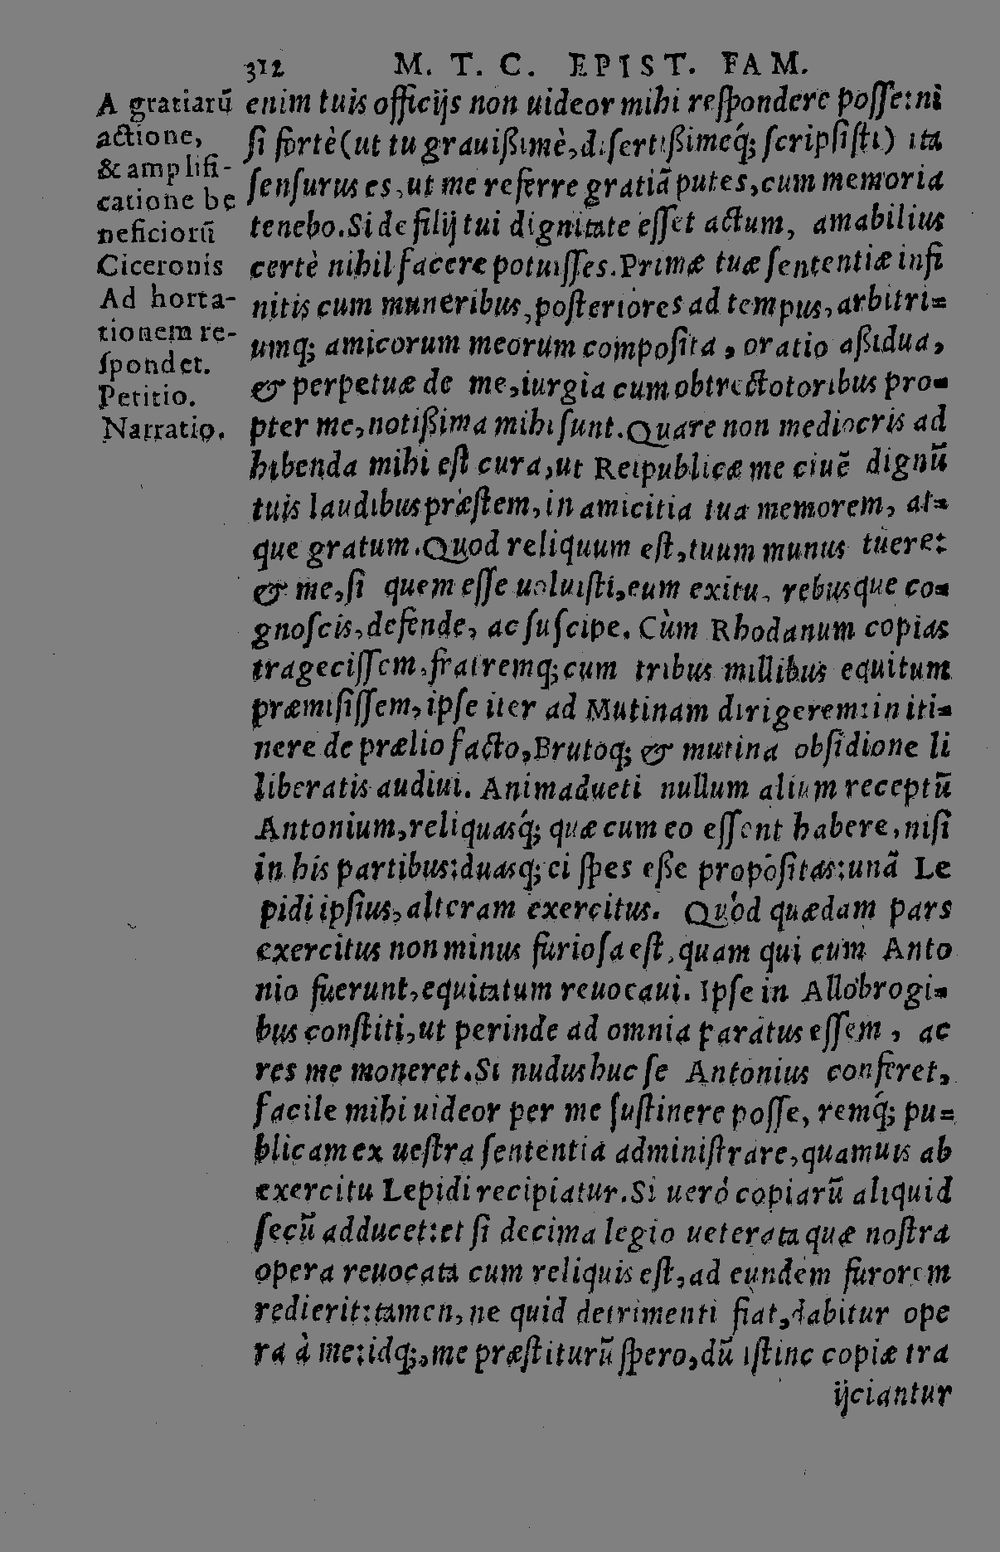 312 M. T. C. EPIST. FAM.
A gratiarũ
actione,
& amplifi-
catione be
neficiorũ
Ciceronis
Ad horta-
tionem re-
spondet.
Petitio.
Narratio.
enim tuis officijs non uideor mihi respondere posse: ni
si fortè (ut tu grauißimè, disertißimeq́; scripsisti) ita
sensurus es, ut me referre gratiã putes, cum memoria
tenebo. Si de filij tui dignitate esset actum, amabilius
certè nihil facere potuisses. Primæ tuæ sententiæ infi
nitis cum muneribus, posteriores ad tempus, arbitri=
umq; amicorum meorum composita, oratio aßidua,
& perpetuæ de me, iurgia cum obtrectotoribus pro=
pter me, notißima mihi sunt. Quare non mediocris ad
hibenda mihi est cura, ut Reipublicæ me ciuẽ dignũ
tuis laudibus præstem, in amicitia tua memorem, at=
que gratum. Quod reliquum est, tuum munus tuere:
& me, si quem esse uoluisti, eum exitu, rebusque co=
gnoscis, defende, ac suscipe. Cùm Rhodanum copias
tragecissem, fratremq; cum tribus millibus equitum
præmisissem, ipse iter ad Mutinam dirigerem: in iti=
nere de prælio facto, Brutoq; & mutina obsidione li
liberatis audiui. Animadueti nullum alium receptũ
Antonium, reliquasq́; quæ cum eo essent habere, nisi
in his partibus: duasq; ei spes eße propositas: unã Le
pidi ipsius, alteram exercitus. Quòd quædam pars
exercitus non minus furiosa est, quam qui cum Anto
nio fuerunt, equitatum reuocaui. Ipse in Allobrogi=
bus constiti, ut perinde ad omnia paratus essem, ac
res me moneret. Si nudus huc se Antonius conferet,
facile mihi uideor per me sustinere posse, remq́; pu=
blicam ex uestra sententia administrare, quamuis ab
exercitu Lepidi recipiatur. Si uerò copiarũ aliquid
secũ adducet: et si decima legio ueterata quæ nostra
opera reuocata cum reliquis est, ad eundem furorem
redierit: tamen, ne quid detrimenti fiat, dabitur ope
ra à me: idq;, me præstiturũ spero, dũ istinc copiæ tra
ijciantur